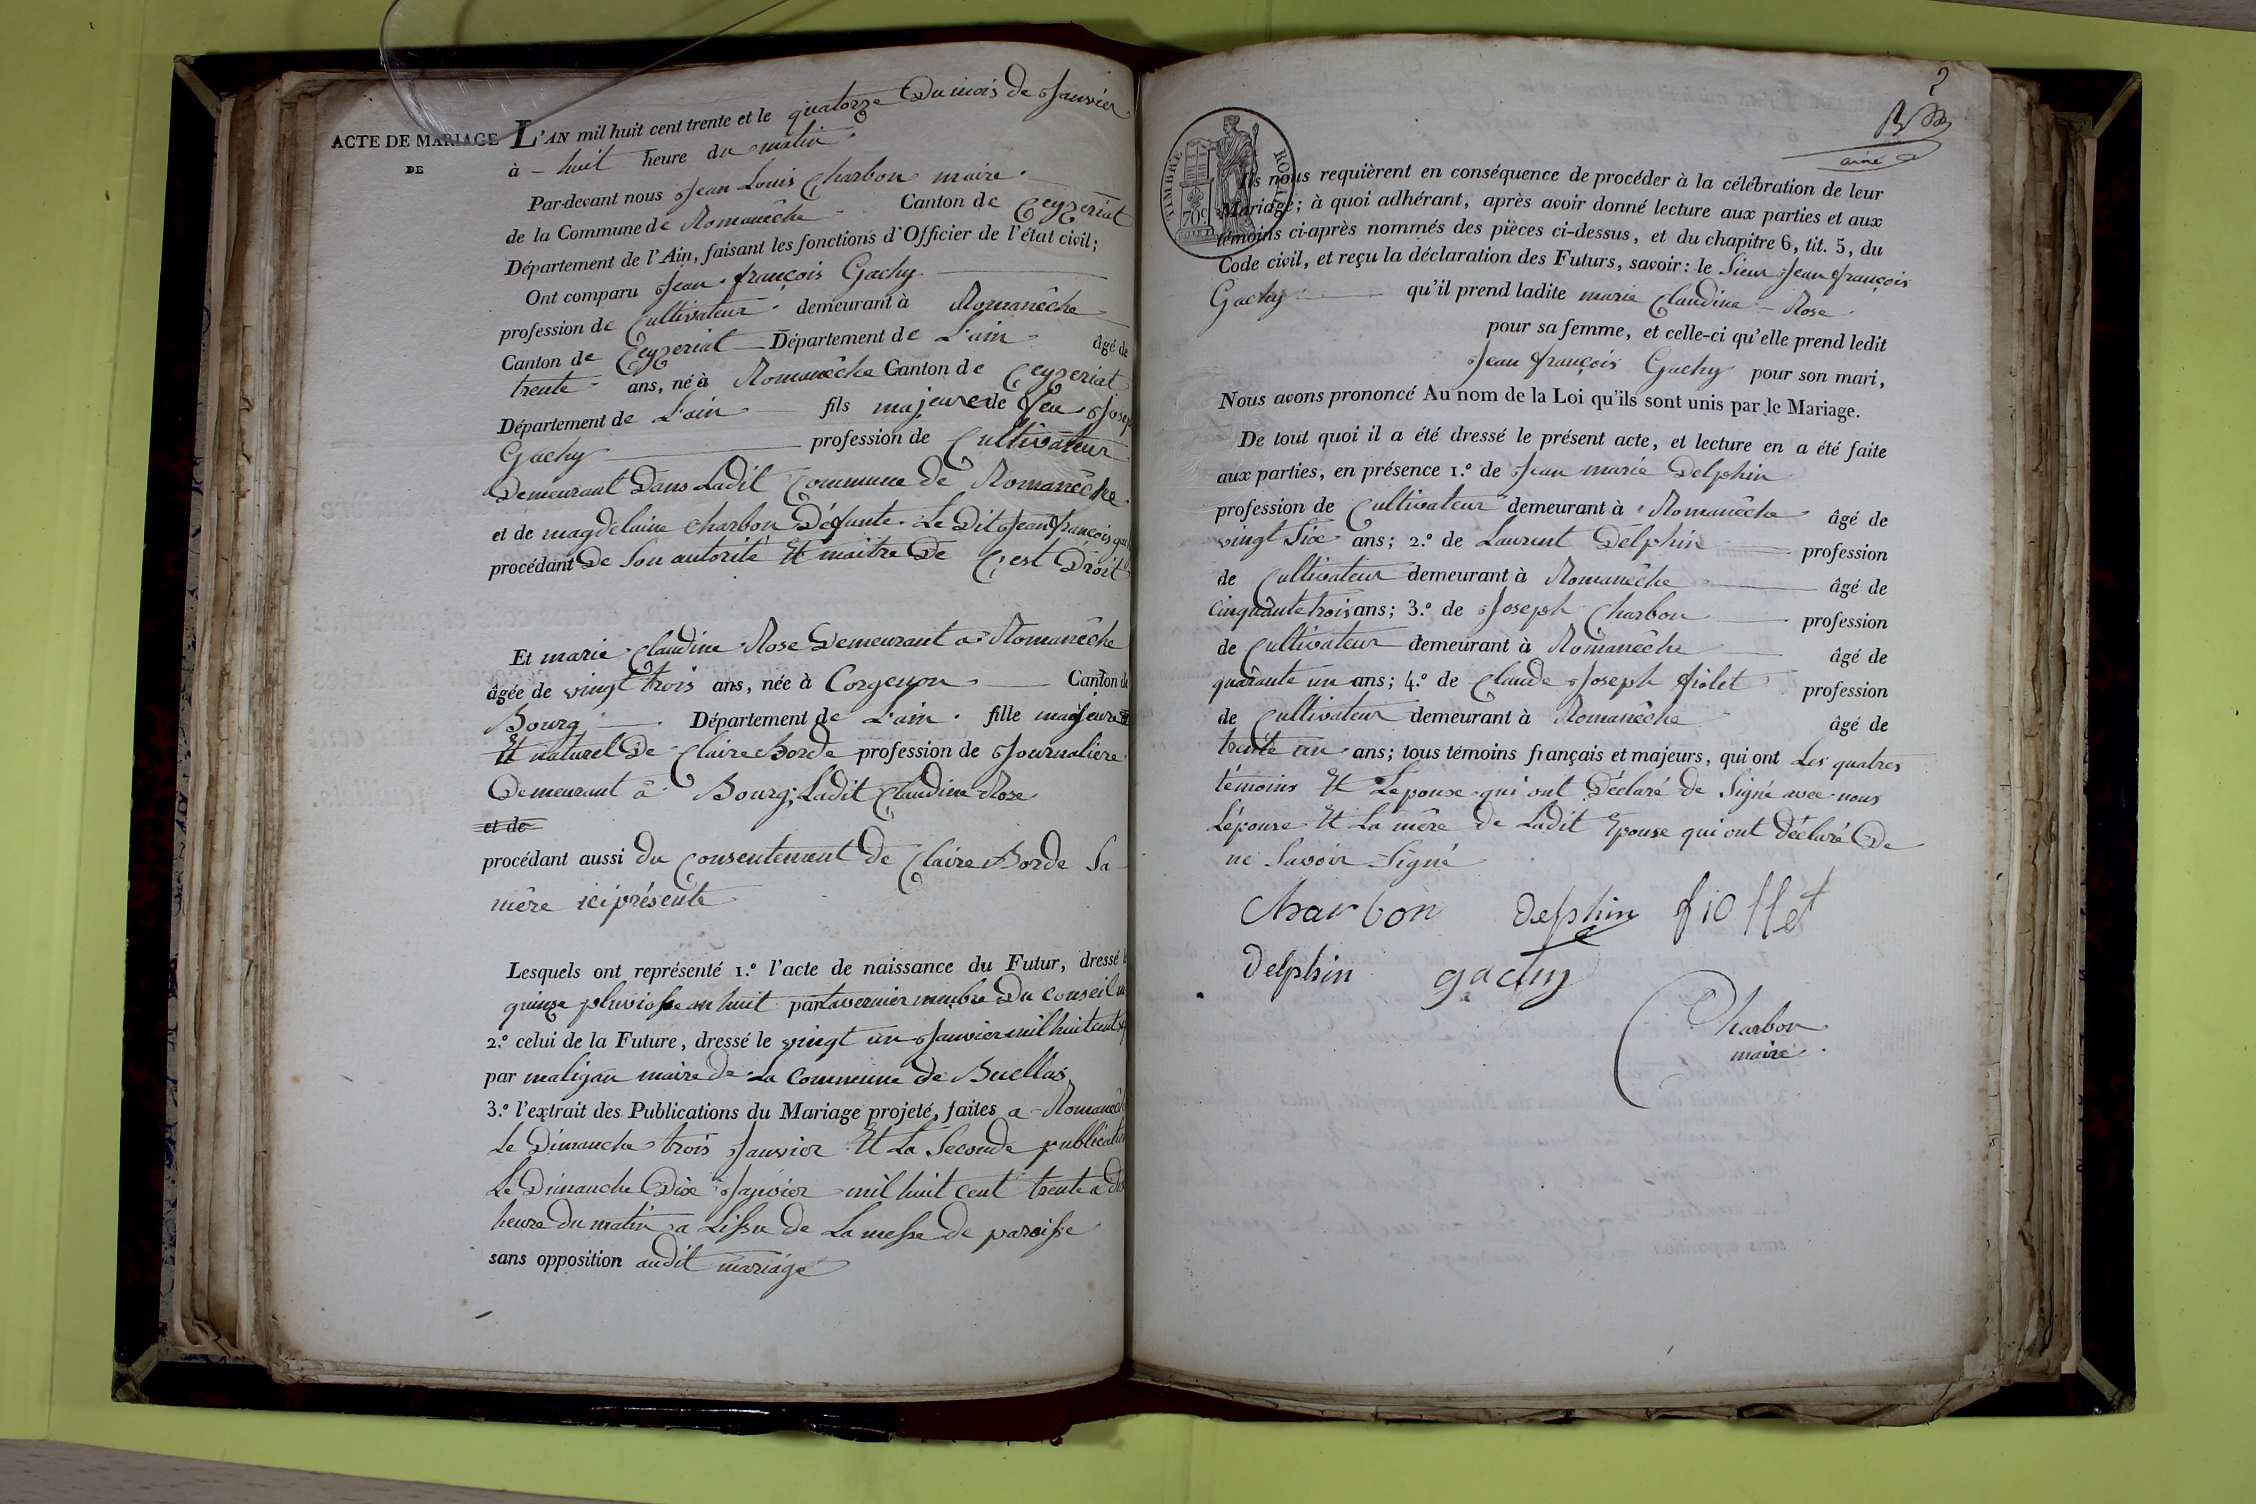 ACTE DE MARIAGE
DE
L'AN mil huit cent trente et le quatorze Du mois de Janvier
à huit heure du matin
Par-devant nous Jean Louis Charbon maire
de la Commune de Romanêche Canton de Ceyzeriat
Département de l'Ain, faisant les fonctions d'Officier de l'état civil;
Ont comparu Jean françois Gachy
profession de Cultivateur demeurant à Romanêche
Canton de Ceyzeriat Département de L'ain âgé de
trente ans, né à Romanêche Canton de Ceyzeriat
Département de L'ain fils majeure de feu Josep
Gachy profession de Cultivateur
Demeurant Dans Ladit Commune De Romanêche
et de magdelaine Charbon Défunte. Le Dit Jean françois
procédant De Son autorité Et maitre De C'est Droit
Et marie Claudine Rose Demeurant a Romanêche
âgée de vingt trois ans, née à Corgenon Canton de
Bourg Département de L'ain fille majeure
Et naturel De Claire Borde profession de Journaliere
Demeurant à Bourg; Ladit Claudine Rose
et de
procédant aussi du Consentement De Claire Borde Sa
mère ici présente
Lesquels ont représenté 1.º l'acte de naissance du Futur, dressé
quinze pluviosse an huit par tavernier membre Du conseil
2.º celui de la Future, dressé le vingt un Janvier mil huit cent
par maligan maire De La Commune de Buellas
3.º l'extrait des Publications du Mariage projeté, faites a Romanêch
Le Dimanche trois Janvier Et La Seconde publication
Le Dimanche Dix Janvier mil huit Cent trente a Dix
heure Du matin a Lissu de La messe de paroisse
sans opposition audit mariage
2
ainé
TIMBRE ROYAL
70c
Ils nous requièrent en conséquence de procéder à la célébration de leur
Mariage; à quoi adhérant, après avoir donné lecture aux parties et aux
témoins ci-après nommés des pièces ci-dessus, et du chapitre 6, tit. 5, du
Code civil, et reçu la déclaration des Futurs, savoir: le Sieur Jean françois
Gachy qu'il prend ladite marie Claudine Rose
pour sa femme, et celle-ci qu'elle prend ledit
Jean françois Gachy pour son mari,
Nous avons prononcé Au nom de la Loi qu'ils sont unis par le Mariage.
De tout quoi il a été dressé le présent acte, et lecture en a été faite
aux parties, en présence 1.º de Jean marie Delphin
profession de Cultivateur demeurant à Romanêche âgé de
vingt Six ans; 2.º de Laurent Delphin profession
de Cultivateur demeurant à Romanêche âgé de
cinquante trois ans; 3.º de Joseph Charbon profession
de Cultivateur demeurant à Romanêche âgé de
quarante un ans; 4.º de Claude Joseph fiolet profession
de Cultivateur demeurant à Romanêche âgé de
trente un ans; tous témoins français et majeurs, qui ont Les quatres
témoins Et Lepoux qui ont Déclaré de Signé avec nous
L'épouse Et La mère de Ladit Epouse qui ont déclaré De
ne Savoir Signé
Charbon Delphin fiollet
Delphin gachy
Charbon
maire